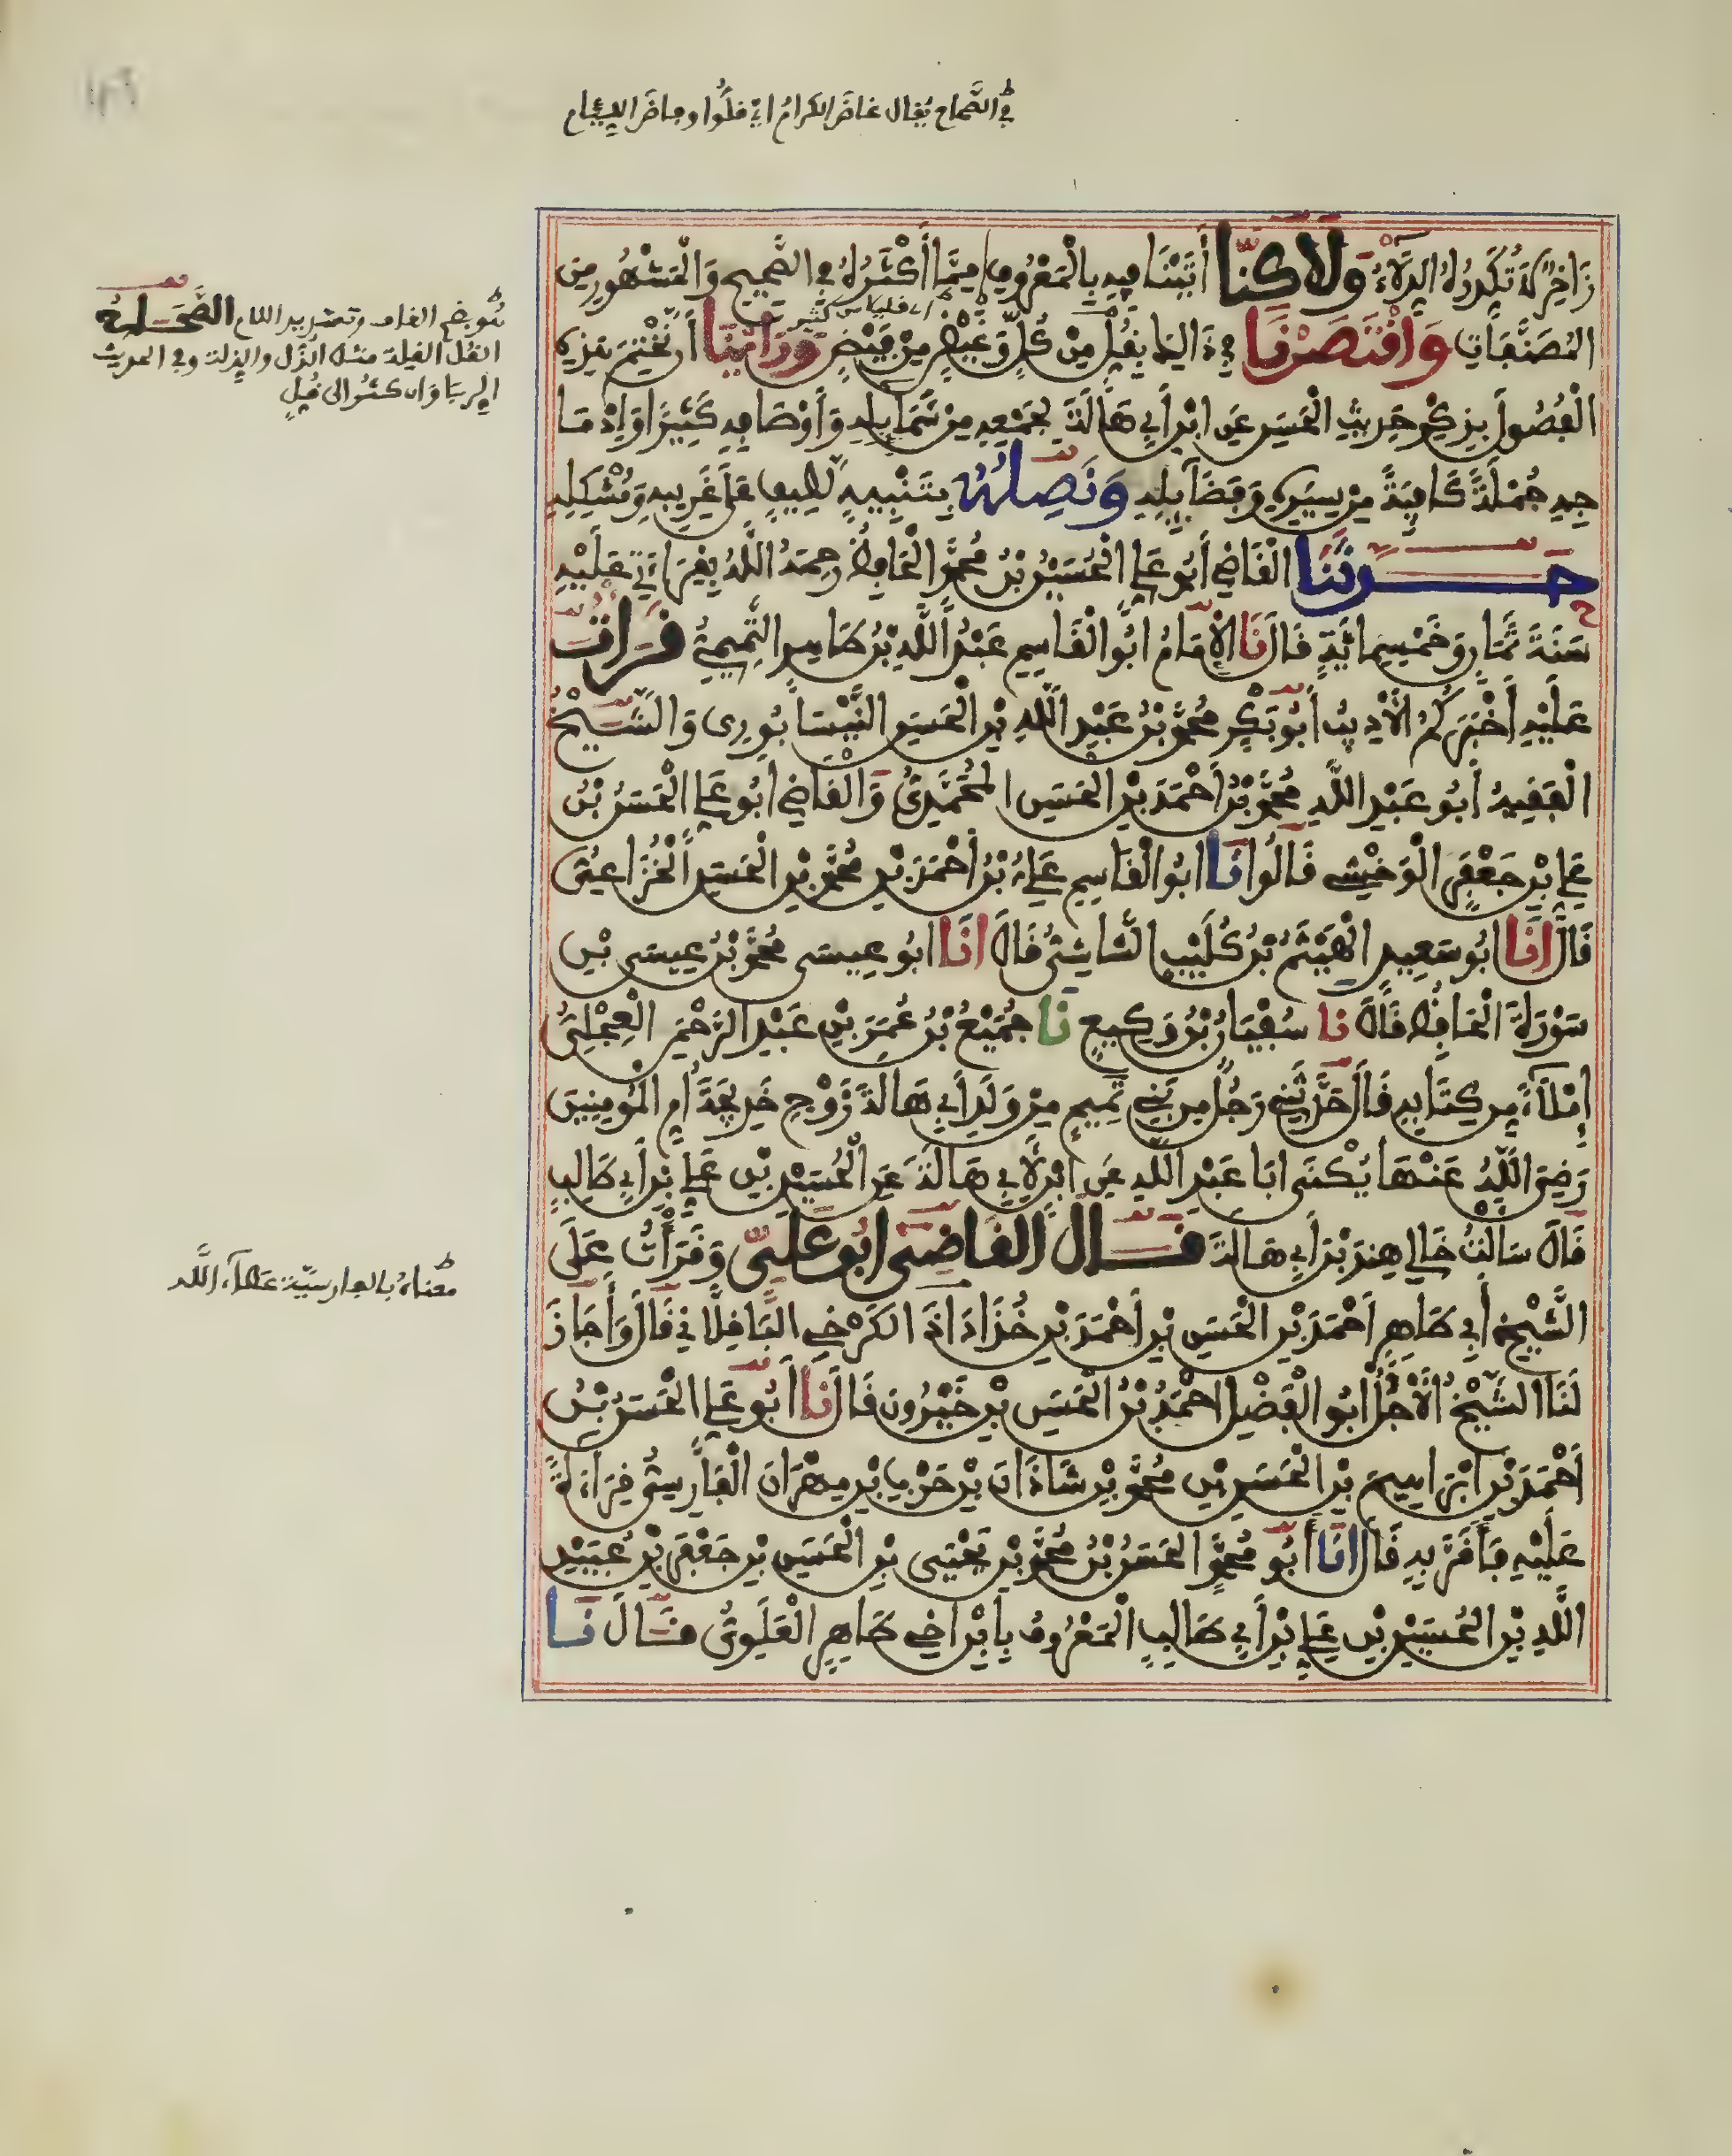 في الصحاح يقال غاض الكرام اي قلوا وفاض اللئام
زَاخِرٌ لَا تُكَدِّرُهُ الدِّلَاءُ وَلَاكِنَّا أَتَيْنَا فِيهِ بِالْمَعْرُوفِ مِمَّا أَكْثَرُهُ فِي الصَّحِيحِ وَالْمَشْهُورِ مِنَ
اي قليلا من كثير
الْمُصَنَّفَاتِ وَاقْتَصَرْنَا فِي ذَالِكَ بِقُلٍّ مِنْ كُلٍّ وَغَيْضٍ مِنْ فَيْضٍ وَرَأَيْنَا أَن نَّخْتِمَ هَذِهِ
الْفُصُولَ بِذِكْرِ حَدِيثِ الْحَسَنِ عَنِ ابْنِ أَبِي هَالَةَ لِجَمْعِهِ مِنْ شَمَايِلِهِ وَأَوْصَافِهِ كَثِيرًا وَإِدْمَا
جِهِ جُمْلَةً كَافِيَةً مِنْ سِيَرِهِ وَفَضَايِلِهِ وَنَصِلُهُ بِتَنْبِيهٍ لَطِيفٍ عَلَى غَرِيبِهِ وَمُشْكِلِهِ
حَدَّثَنَا الْقَاضِي أَبُو عَلِيٍّ الْحُسَيْنُ بْنُ مُحَمَّدٍ الْحَافِظُ رَحِمَهُ اللَّهُ بِقِرَاءَتِي عَلَيْهِ
سَنَةَ ثَمَانٍ وَخَمْسِمِائَةٍ قَالَ نَا الْإِمَامُ أَبُو الْقَاسِمِ عَبْدُ اللَّهِ بْنُ طَاهِرٍ التَّمِيمِيُّ قَرَأْتُ
عَلَيْهِ أَخْبَرَكُمُ الْأَدِيبُ أَبُو بَكْرٍ مُحَمَّدُ بْنُ عَبْدِ اللَّهِ بْنِ الْحَسَنِ النَّيْسَابُورِي وَالشَّيْخُ
الْفَقِيهُ أَبُو عَبْدِ اللَّهِ مُحَمَّدُ بْنُ أَحْمَدَ بْنِ الْحَسَنِ الْمُحَمَّدِيُّ وَالْقَاضِي أَبُو عَلِيٍّ الْحَسَنُ بْنُ
عَلِيِّ بْنِ جَعْفَرٍ الْوَخْشِيُّ قَالُوا نَا أَبُو الْقَاسِمِ عَلِيُّ بْنُ أَحْمَدَ بْنِ مُحَمَّدِ بْنِ الْحَسَنِ الْخُزَاعِيُّ
قَالَ أَنَا أَبُو سَعِيدٍ الْهَيْثَمُ بْنُ كُلَيْبٍ الشَّاشِيُّ قَالَ أَنَا أَبُو عِيسَى مُحَمَّدُ بْنُ عِيسَى بْنِ
سَوْرَةَ الْحَافِظُ قَالَ نا سُفْيَانُ بْنُ وَكِيعٍ نَا جُمَيْعُ بْنُ عُمَرَ بْنِ عَبْدِ الرَّحْمَنِ الْعِجْلِيُّ
إِمْلَاءً مِن كِتَابِهِ قَالَ حَدَّثَنِي رَجُلٌ مِن بَنِي تَمِيمٍ مِنْ وَلَدِ أَبِي هَالَةَ زَوْجِ خَدِيجَةَ أُمِّ الْمُومِنِينَ
رَضِيَ اللَّهُ عَنْهَا يُكْنَى أَبَا عَبْدِ اللَّهِ عَنِ ابْنٍ لِأَبِي هَالَةَ عَنِ الْحُسَيْنِ بْنِ عَلِيِّ بْنِ أَبِي طَالِبٍ
قَالَ سَأَلْتُ خَالِي هِنْدَ بْنَ أَبِي هَالَةَ قَالَ الْقَاضِي أَبُو عَلِيٍّ وَقَرَأْتُ عَلَى
الشَّيْخِ أَبِي طَاهِرٍ أَحْمَدَ بْنِ الْحَسَنِ بْنِ أَحْمَدَ بْنِ خُذَادَاذَ الْكَرْخِي الْبَاقِلَّانِي قَالَ وَأَجَازَ
لَنَا الشَّيْخُ الْأَجَلُّ أَبُو الْفَضْلِ أَحْمَدُ بْنُ الْحَسَنِ بْنِ خَيْرُونَ قَالَ نَا أَبُو عَلِيٍّ الْحَسَنُ بْنُ
أَحْمَدَ بْنِ إِبْرَاهِيمَ بْنِ الْحَسَنِ بْنِ مُحَمَّدِ بْنِ شَاذَانَ بْنِ حَرْبِ بْنِ مِهْرَانَ الْفَارِسِيُّ قِرَاءَةً
عَلَيْهِ فَأَقَرَّ بِهِ قَالَ أَنَا أَبُو مُحَمَّدٍ الْحَسَنُ بْنُ مُحَمَّدِ بْنِ يَحْيَى بْنِ الْحَسَنِ بْنِ جَعْفَرِ بْنِ عُبَيْدِ
اللَّهِ بْنِ الْحُسَيْنِ بْنِ عَلِيِّ بْنِ أَبِي طَالِبٍ الْمَعْرُوفُ بِابْنِ أَخِي طَاهِرٍ الْعَلَوِيُّ قَالَ نَا
هو بضم القاف وتشديد اللام
القل القلة مثل الذل والذلة وفي الحديث
الربا وان كثر الى قل
معناه بالفارسية عطاء الله